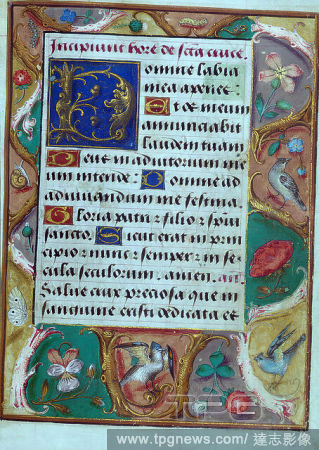 Incipiunt hore de sc̃ta cruce.
Domine labia
mea aperies.
Et os meum
annunciabit
laudem tuam
Deus in adiutorium me
um intende. Domine ad
adiuuandum me festina
Gloria patri ⁊ filio ⁊ spũi
sancto. Sicut erat in prin
cipio ⁊ nunc ⁊ semper ⁊ in se
cula seculorum. amen.
Salue crux preciosa que in
sanguine cristi dedicata es
TPG
www.tpgnews.com / 達志影像